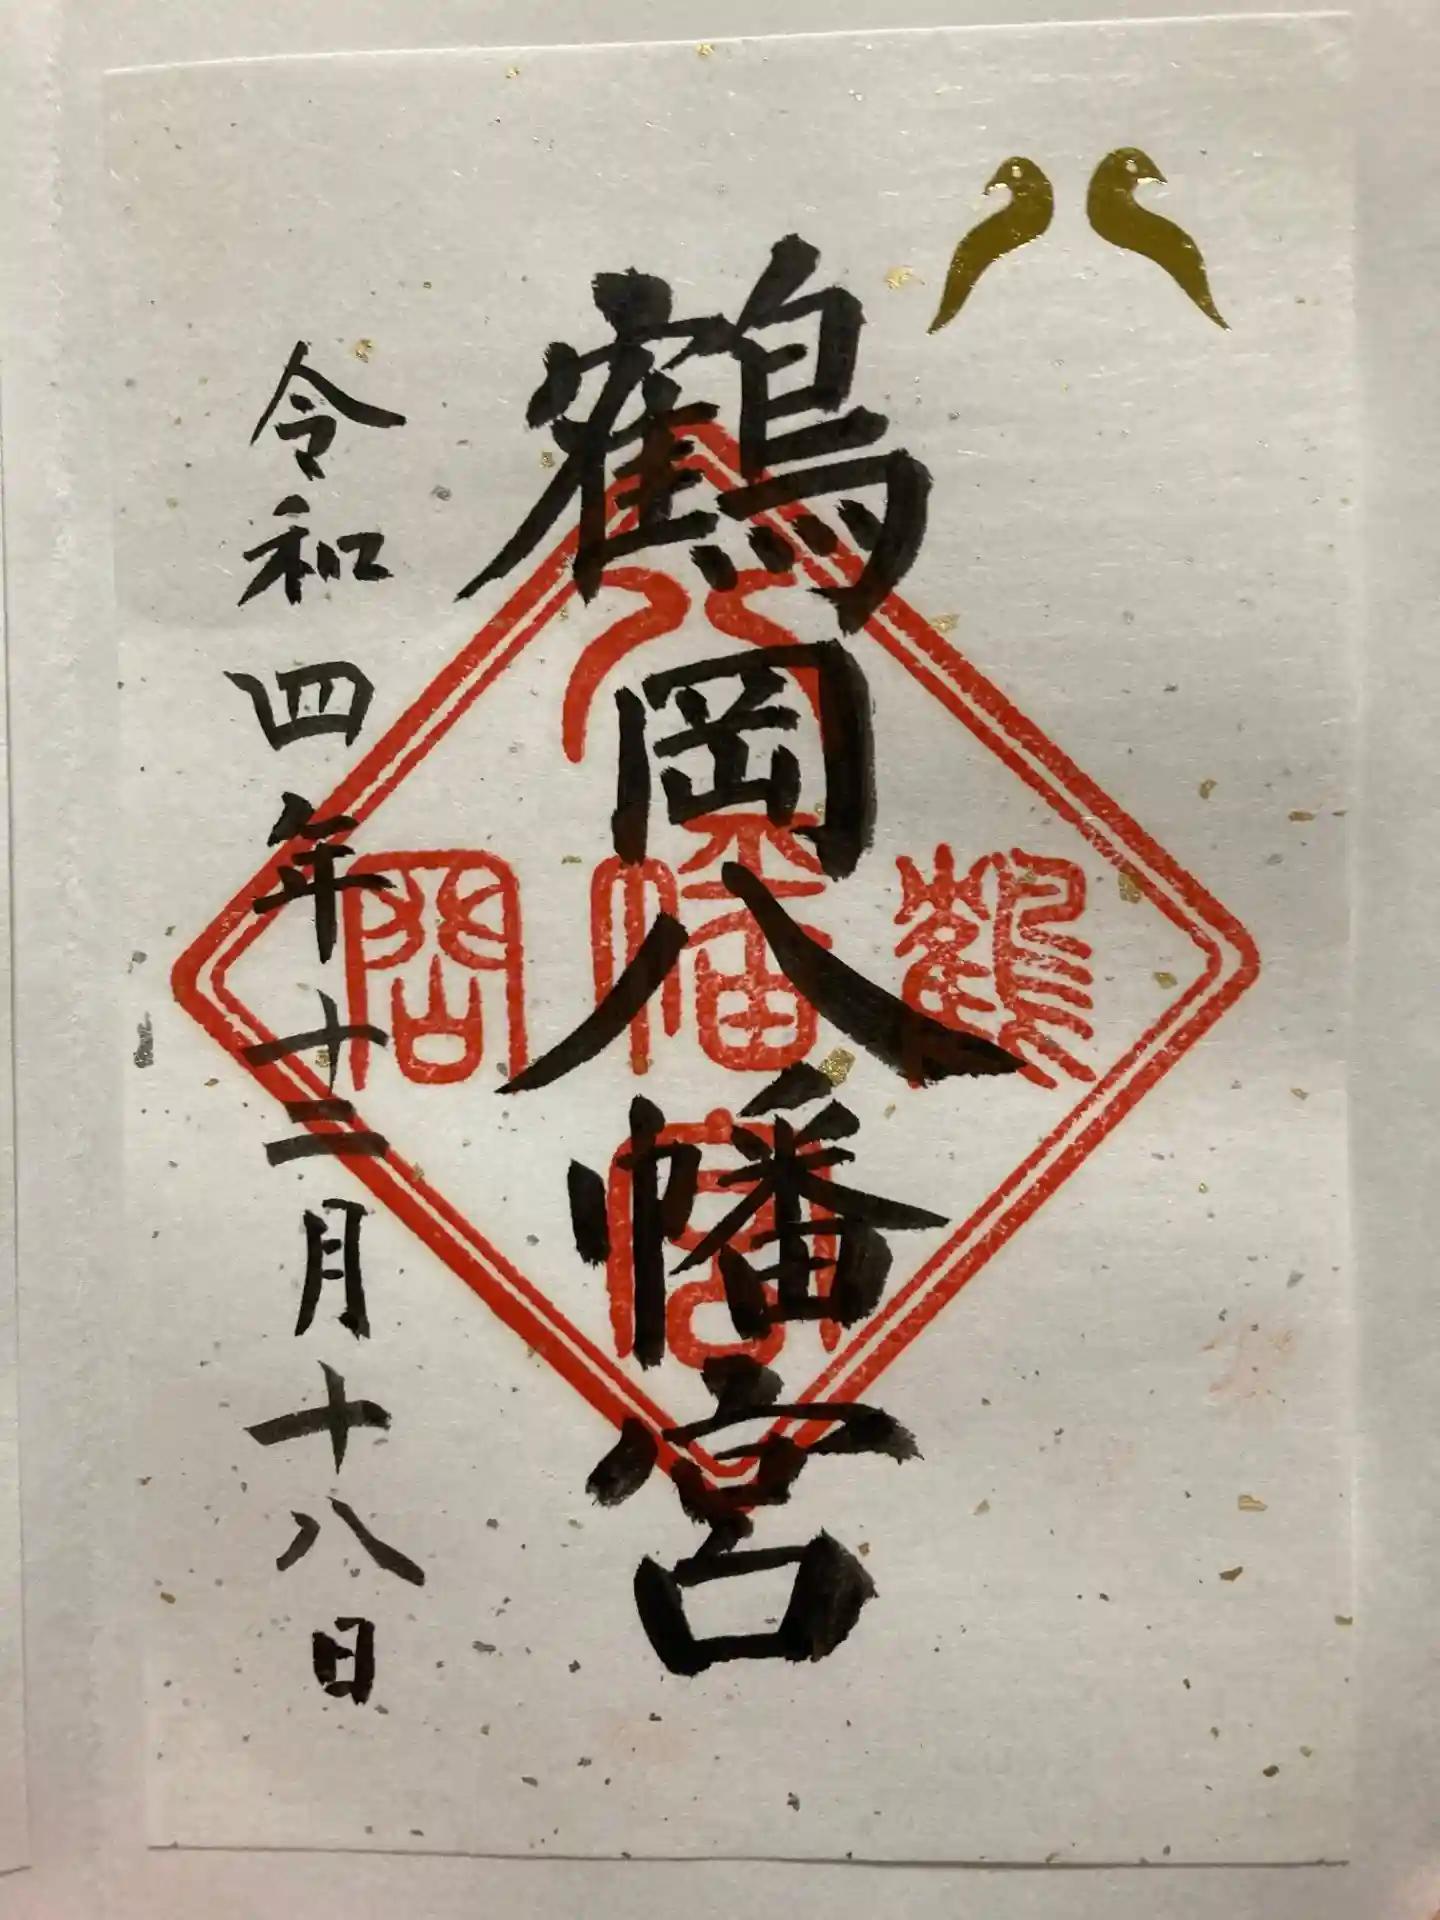 鶴岡八幡宮
令和四年十二月十八日
八
鶴
幡
岡
宮